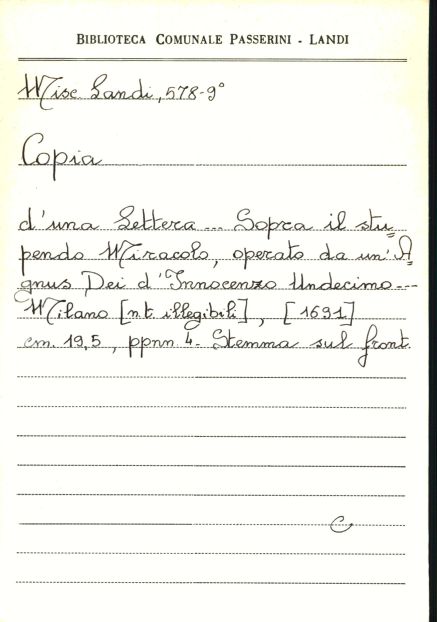 BIBLIOTECA COMUNALE PASSERINI - LANDI
Misc Landi, 578-9°
Copia
d'una Lettera ... Sopra il stu=
pendo Miracolo, operato da un' A=
gnus Dei d'Innocenzo Undecimo...
Milano [n.t. illegibili], [1691]
cm. 19,5, ppnn 4. Stemma sul front.
C